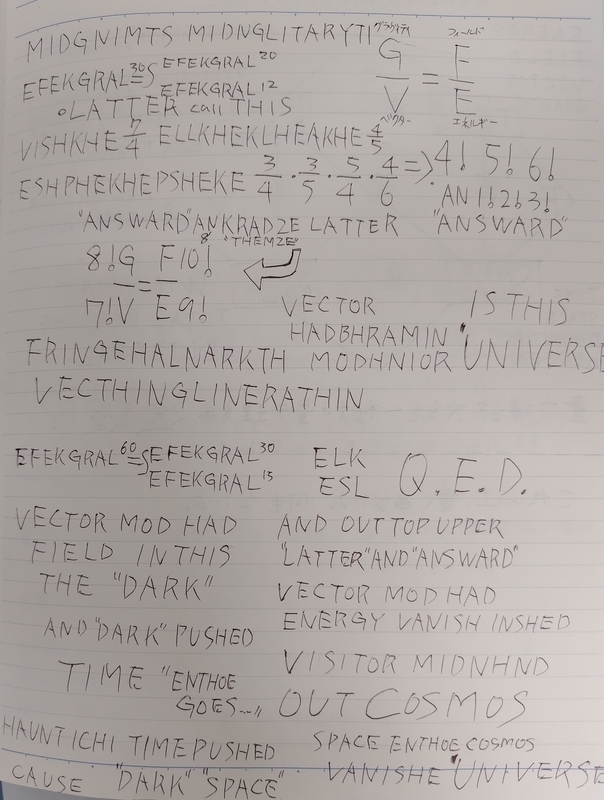 MIDGNIMTS MIDNGLITARYTI
グラビティ フィールド
G/V = F/E
ベクター エネルギー
EFEKGRAL³⁰=∫EFEKGRAL²⁰
EFEKGRAL¹²
∘LATTER call THIS
VISHKHE 7/4 ELLKHEKLHEAKHE 4/5
ESHPHEKHEPSHEKE 3/4 · 3/5 · 5/4 · 4/6 => 4! 5! 6!
AN 1! 2! 3!
"ANSWARD" ANKRADZE LATTER "ANSWARD"
8 "THEMZE"
8!G/7!V = F10!/E9!
VECTOR IS THIS
HADBHRAMIN
FRINGEHALNARKTH MODHNIOR "UNIVERSE
VECTHINGLINERATHIN
EFEKGRAL⁶⁰=∫EFEKGRAL³⁰
EFEKGRAL¹⁵
ELK
ESL
Q.E.D.
VECTOR MOD HAD
FIELD IN THIS
THE "DARK"
AND "DARK" PUSHED
TIME "ENTHOE
GOES...,,
HAUNTICHI TIME PUSHED
CAUSE "DARK" "SPACE"
AND OUT TOP UPPER
"LATTER" AND "ANSWARD"
VECTOR MOD HAD
ENERGY VANISH INSHED
VISITOR MIDNHND
OUT COSMOS
SPACE ENTHOE COSMOS
VANISHE "UNIVERSE